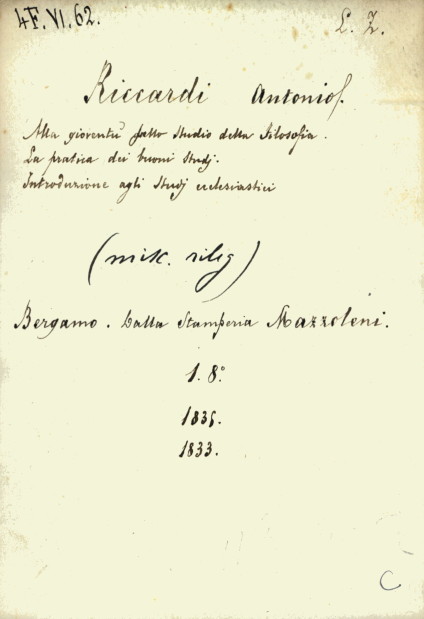 4F.VI.62.
L. Z.
Riccardi Antonio.
Alla gioventù fatto Studio della Filosofia.
La pratica dei buoni Studj.
Introduzione agli Studj ecclesiastici
(misc. rilig)
Bergamo. Dalla Stamperia Mazzoleni.
1. 8°
1835.
1833.
C